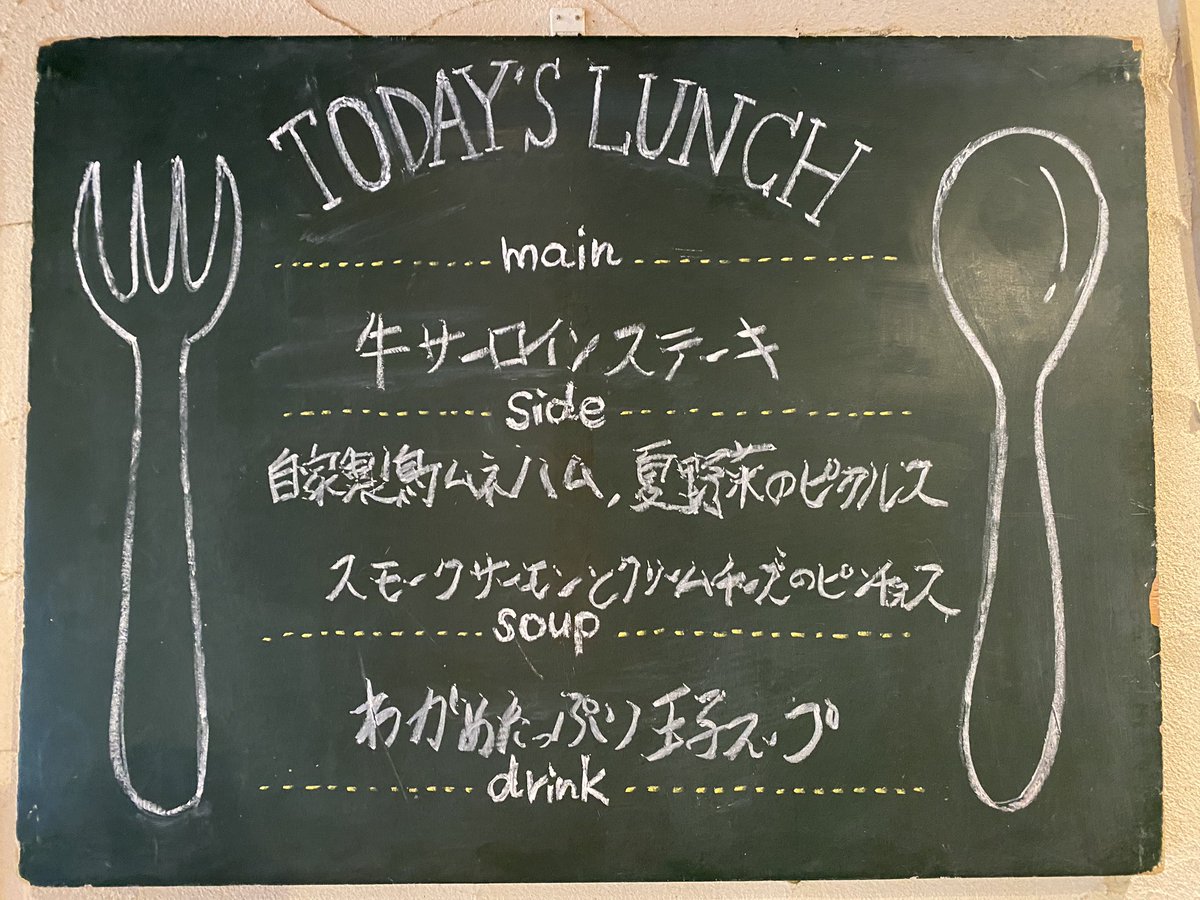 TODAY'S LUNCH
main
牛サーロインステーキ
side
自家製鳥ムネハム,夏野菜のピクルス
スモークサーモンとクリームチーズのピンチョス
soup
わかめたっぷり玉子スープ
drink